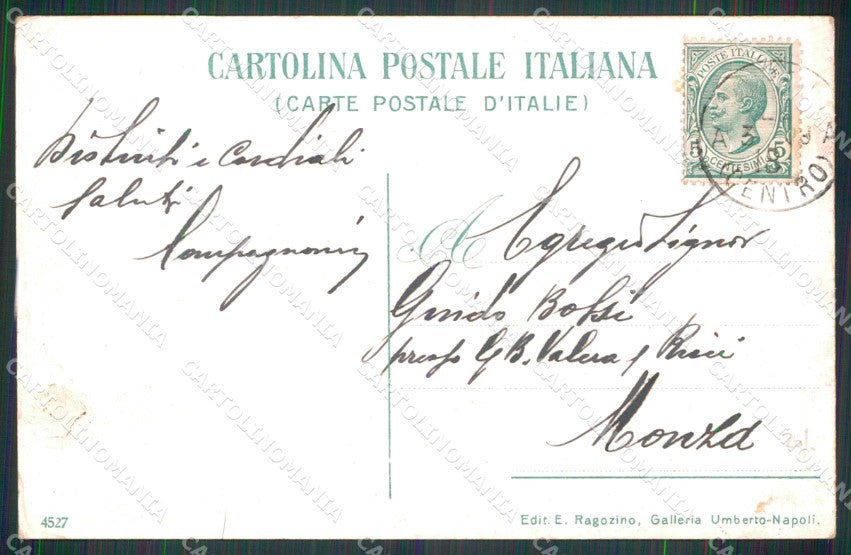 CARTOLINA POSTALE ITALIANA
(CARTE POSTALE D'ITALIE)
POSTE ITALIANE
5 5
CENTESIMI
(CENTRO)
Distinti e Cordiali
Saluti
Compagnoni
A Egregio Signor
Guido Bossi
presso G. B. Valera &
Monza
4527
Edit. E. Ragozino, Galleria Umberto-Napoli.
CARTOLINOMANIA